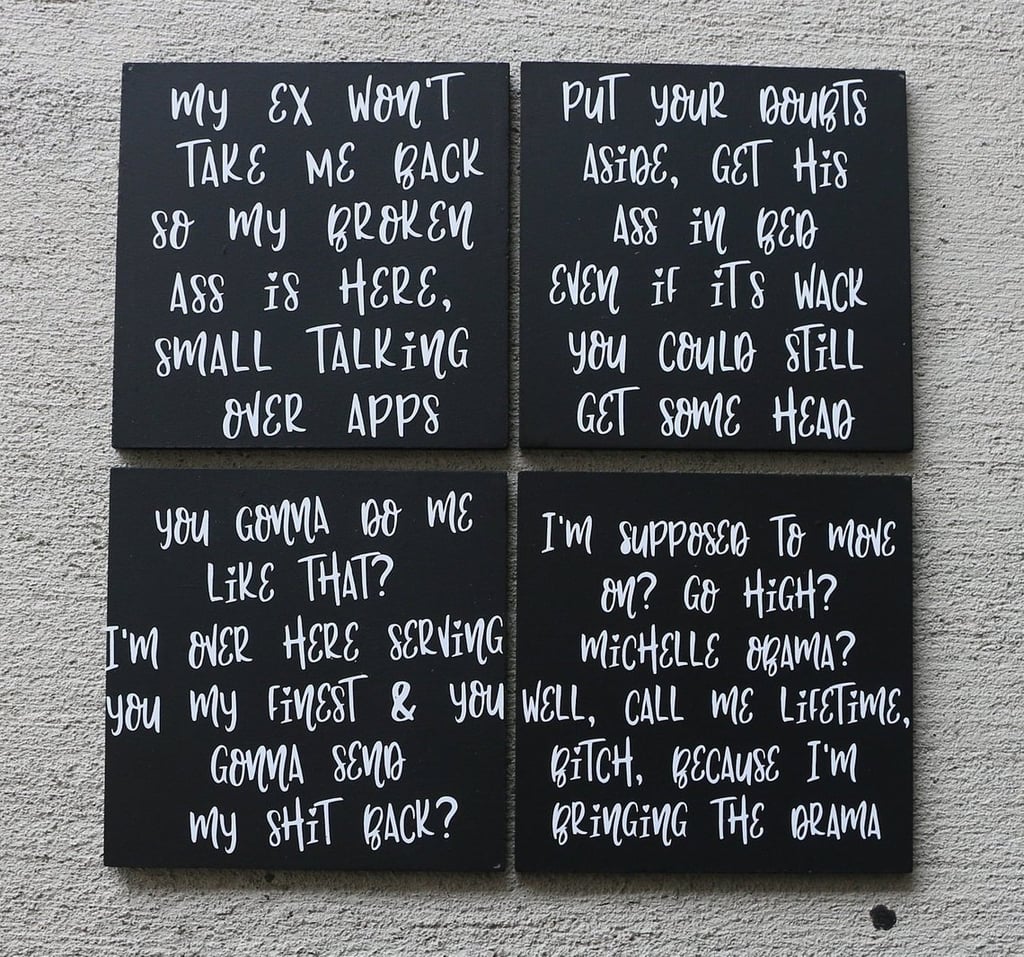 MY EX WON'T
TAKE ME BACK
SO MY BROKEN
ASS iS HERE,
SMALL TALKiNG
OVER APPS
PUT YOUR DOUBTS
ASiDE, GET HiS
ASS iN BED
EVEN iF iT'S WACK
YOU COULD STiLL
GET SOME HEAD
YOU GONNA DO ME
LiKE THAT?
I'M OVER HERE SERViNG
YOU MY FiNEST & YOU
GONNA SEND
MY SHiT BACK?
I'M SUPPOSED TO MOVE
ON? GO HiGH?
MiCHELLE OBAMA?
WELL, CALL ME LiFETiME,
BiTCH, BECAUSE I'M
BRiNGiNG THE DRAMA